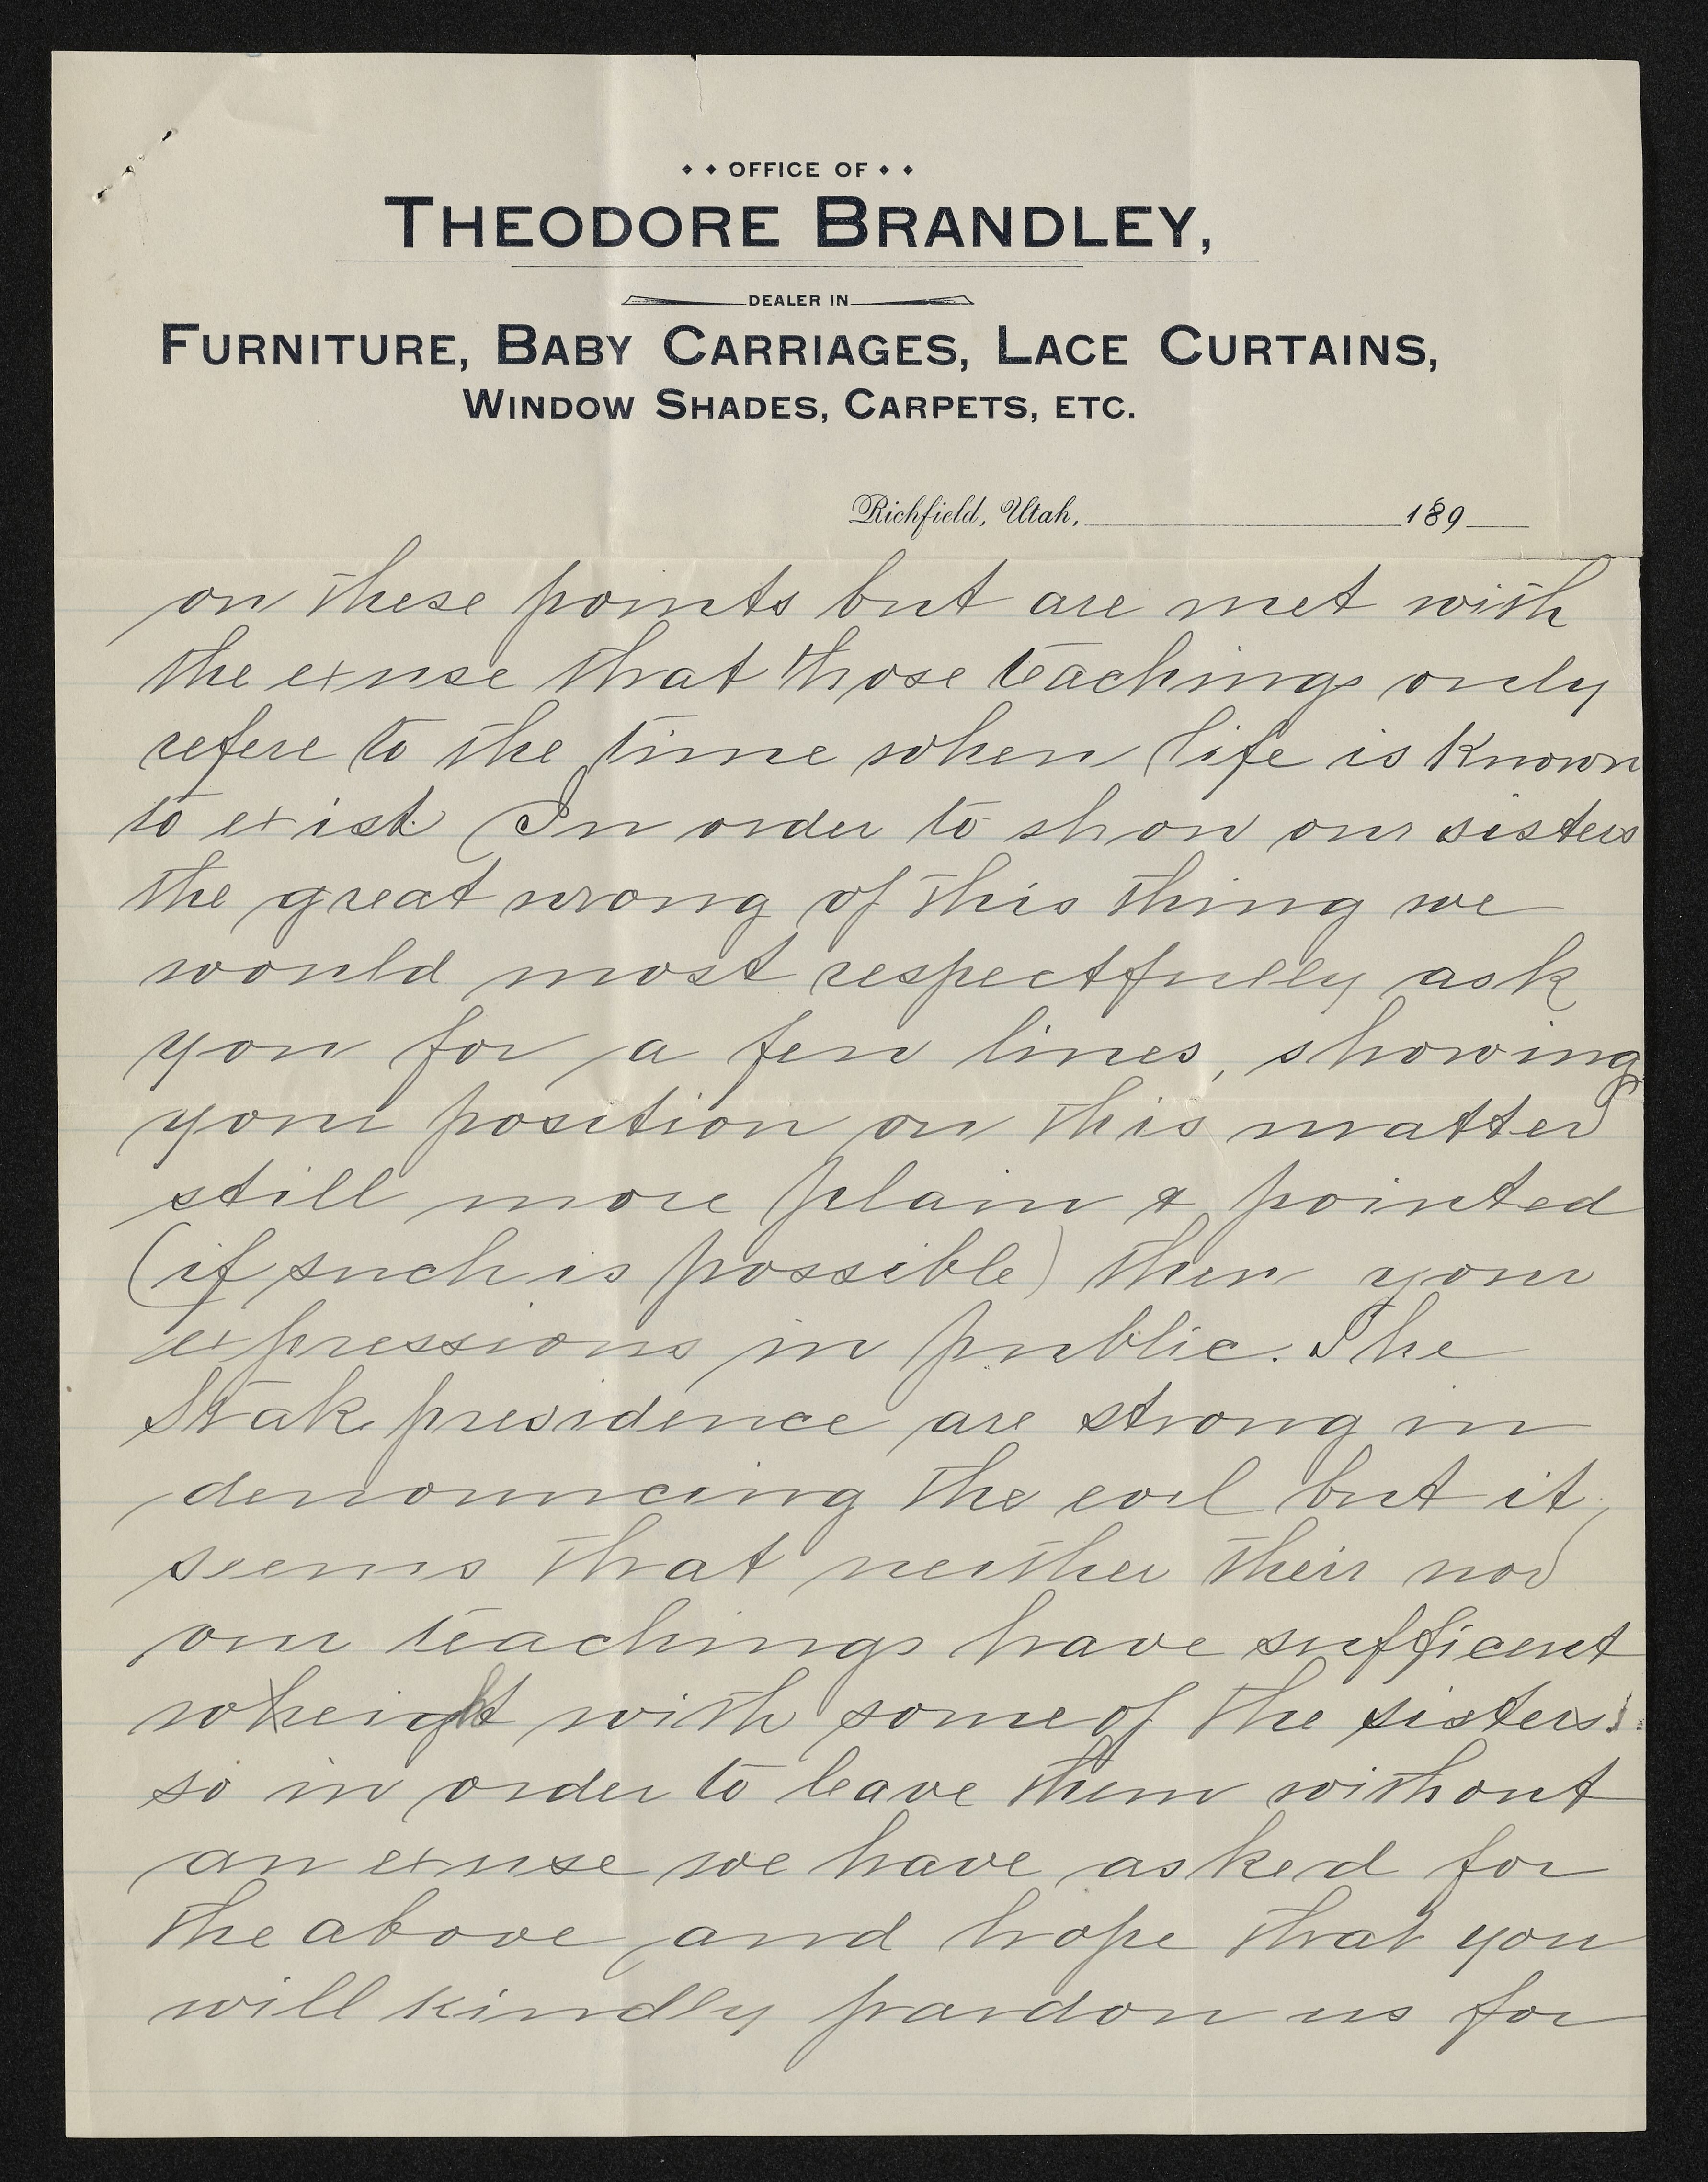 OFFICE OF
THEODORE BRANDLEY,
DEALER IN
FURNITURE, BABY CARRIAGES, LACE CURTAINS,
WINDOW SHADES, CARPETS, ETC.
Richfield, Utah, 189
on these points but are met with
the exuse that those teachings only
refere to the time when life is known
to exist. In order to show our sisters
the great wrong of this thing we
would most respectfully ask
you for a few lines, showing
your position on this matter
still more plain & pointed
(if such is possible) then your
expressions in public. The
Stak presidence are strong in
denouncing the evil but it
seems that neither their nor
our teachings have sufficent
wheight with some of the sisters.
so in order to leave them without
an exuse we have asked for
the above and hope that you
will kindly pardon us for